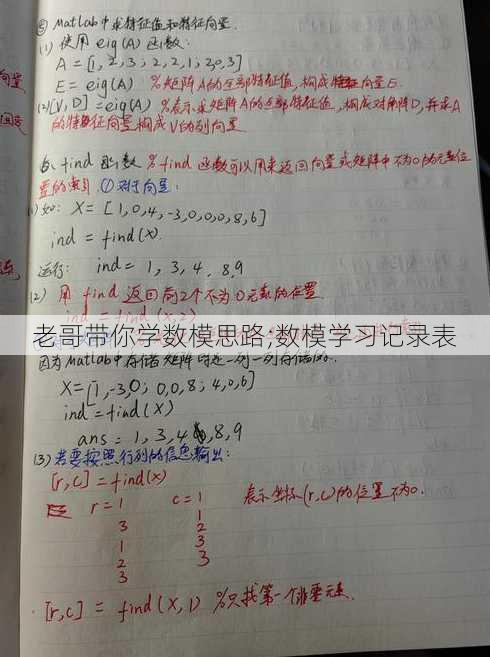 ⑤ Matlab中求特征值和特征向量.
(1) 使用 eig(A) 函数:
A = [1, 2, 3; 2, 2, 1; 2,0,3]
E = eig(A) %矩阵A的全部特征值,构成特征向量E.
(2)[V, D] = eig(A) %表示求矩阵A的全部特征值,构成对角阵D,并求A
的特征向量构成V的列向量
6、find 函数 %find 函数可以用来返回向量或矩阵中不为0的元素位
置的索引. ①对于向量:
(1) 如: X = [1,0,4,-3,0,0,0,8,6]
ind = find(X).
运行: ind = 1, 3, 4, 8,9
(2) 用 find 返回前2个不为0元素的位置
ind = find(X,2)
老哥带你学数模思路;数模学习记录表
因为Matlab中存储矩阵时是一列一列存储的.
X=[1,-3,0; 0,0,8; 4,0,6]
ind = find(X)
ans = 1, 3, 4, 8, 9
(3) 若要按照行列的信息输出:
[r,c] = find(x)
r = 1 c = 1 表示坐标(r,c)的位置不为0.
3 1
1 2
2 3
3 3
[r,c] = find(X,1) %只找第一个非零元素.